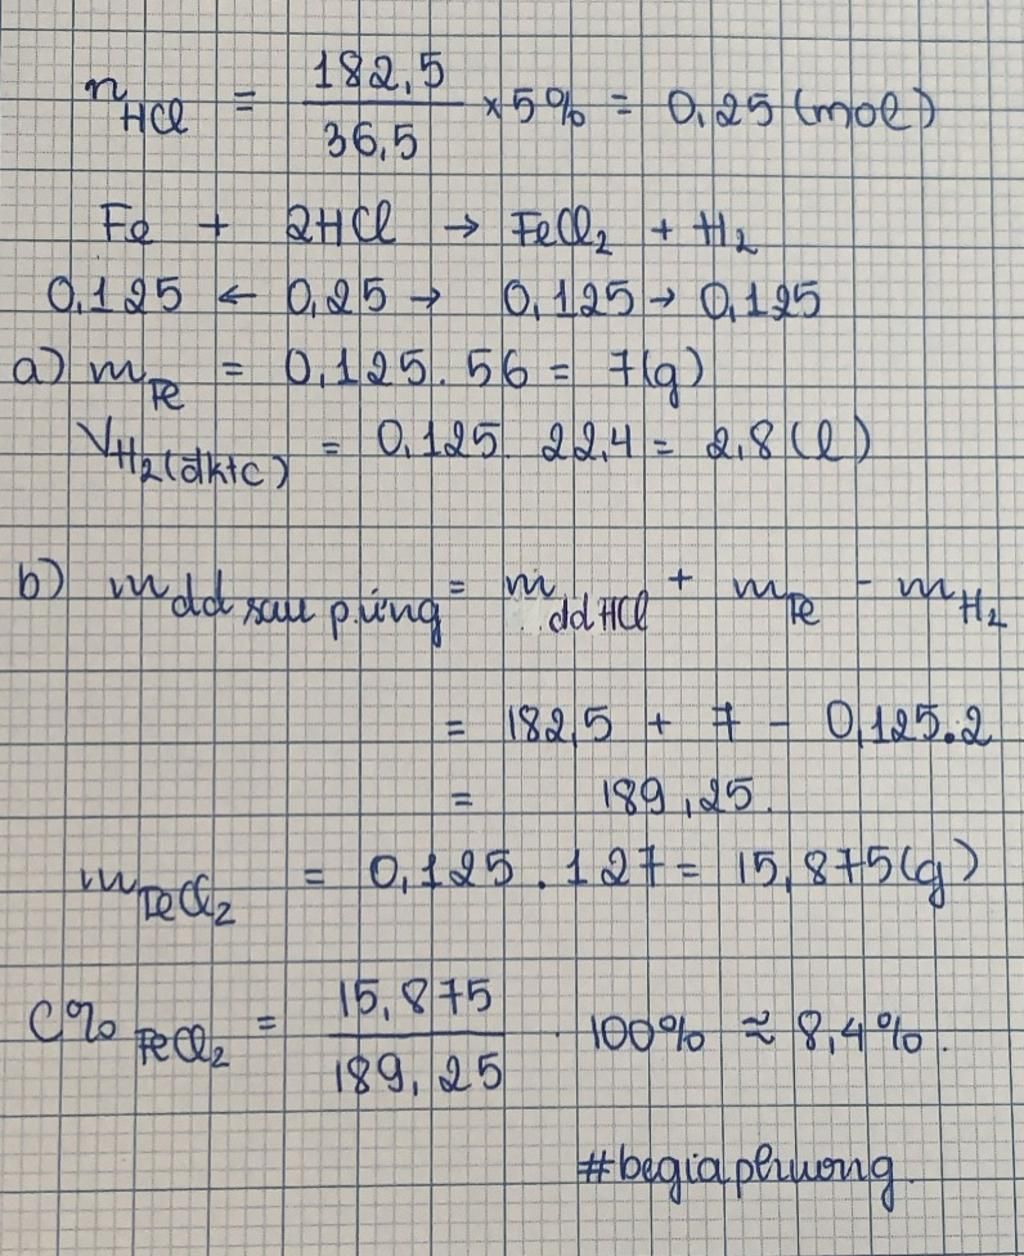 n HCl = 182,5 / 36,5 × 5% = 0,25 (mol)
Fe + 2HCl → FeCl₂ + H₂
0,125 ← 0,25 → 0,125 → 0,125
a) m Fe = 0,125 . 56 = 7(g)
V H₂(đktc) = 0,125 . 22,4 = 2,8 (l)
b) m dd sau p.ứng = m dd HCl + m Fe - m H₂
= 182,5 + 7 - 0,125.2
= 189,25.
m FeCl₂ = 0,125 . 127 = 15,875(g)
C% FeCl₂ = 15,875 / 189,25 . 100% ≈ 8,4%.
#begiaphuong.